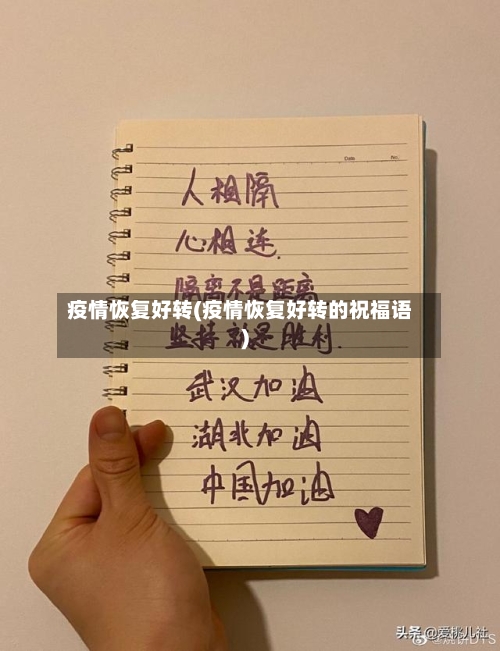 Date.
No.
人相隔
心相连.
隔离不是距离
疫情恢复好转(疫情恢复好转的祝福语
)
坚持就是胜利.
武汉加油
湖北加油
中国加油
头条 @爱桃儿社